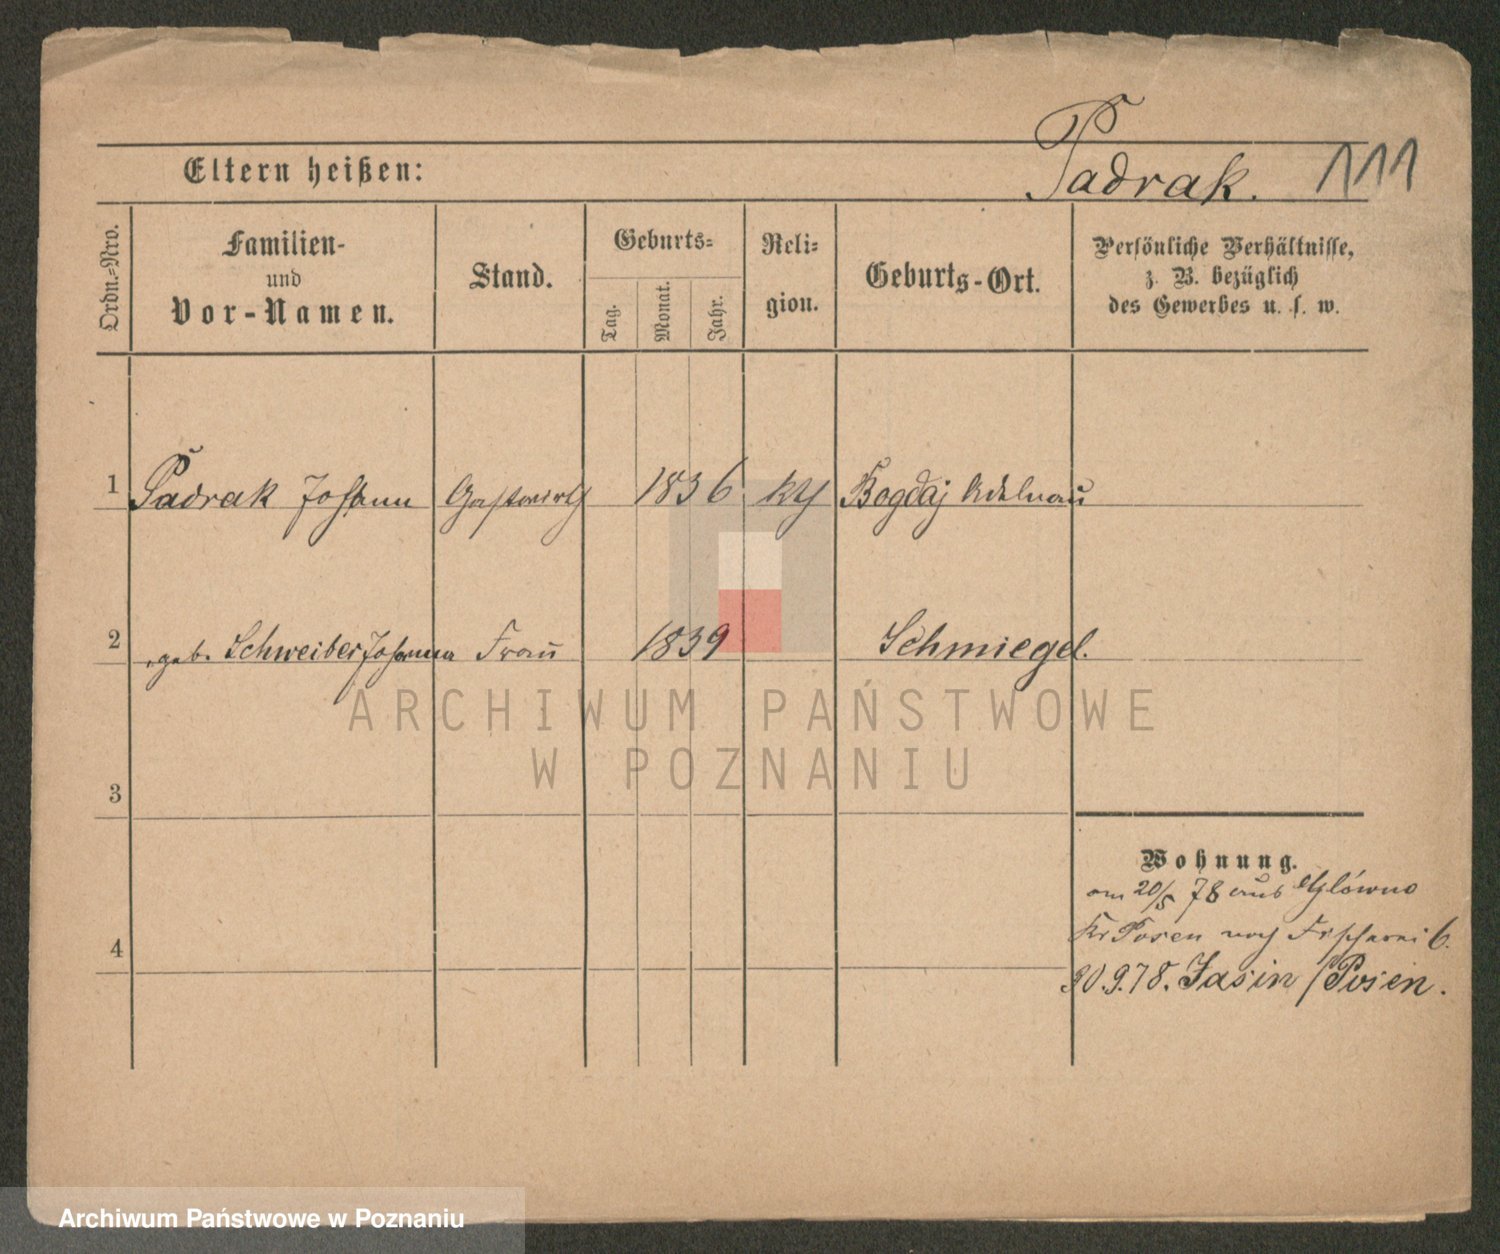 Padrak. 111
Eltern heißen:
Ordn.=Nro.
Familien-
und
Vor-Namen.
Stand.
Geburts=
Tag.
Monat.
Jahr.
Reli=
gion.
Geburts-Ort.
Persönliche Verhältnisse,
z. B. bezüglich
des Gewerbes u. s. w.
1 Padrak Johann Gastwirth 1836 kth Bogdaj Adelnau
2 geb. Schweiber Johanna Frau 1839 Schmiegel.
3
4
Wohnung.
am 20/5 78 aus Główno
Kr Posen nach Fischerei 6.
30.9.78. Jasin / Posen.
ARCHIWUM PAŃSTWOWE
W POZNANIU
Archiwum Państwowe w Poznaniu